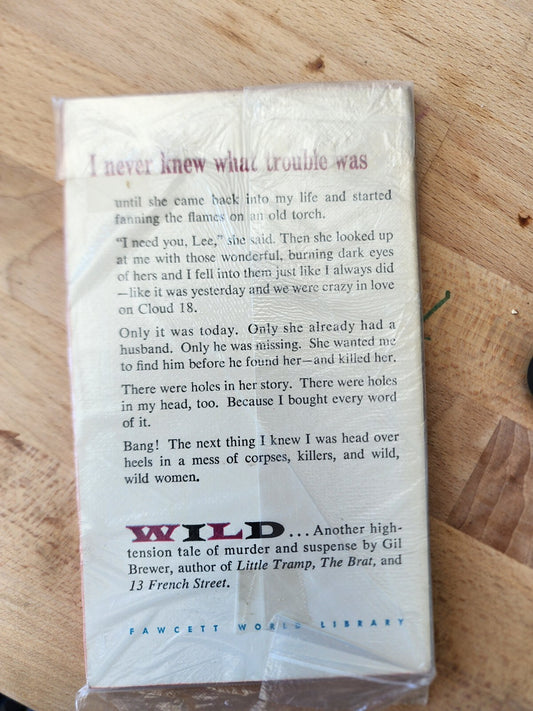 I never knew what trouble was
until she came back into my life and started
fanning the flames on an old torch.
"I need you, Lee," she said. Then she looked up
at me with those wonderful, burning dark eyes
of hers and I fell into them just like I always did
—like it was yesterday and we were crazy in love
on Cloud 18.
Only it was today. Only she already had a
husband. Only he was missing. She wanted me
to find him before he found her—and killed her.
There were holes in her story. There were holes
in my head, too. Because I bought every word
of it.
Bang! The next thing I knew I was head over
heels in a mess of corpses, killers, and wild,
wild women.
WILD... Another high-
tension tale of murder and suspense by Gil
Brewer, author of Little Tramp, The Brat, and
13 French Street.
FAWCETT WORLD LIBRARY